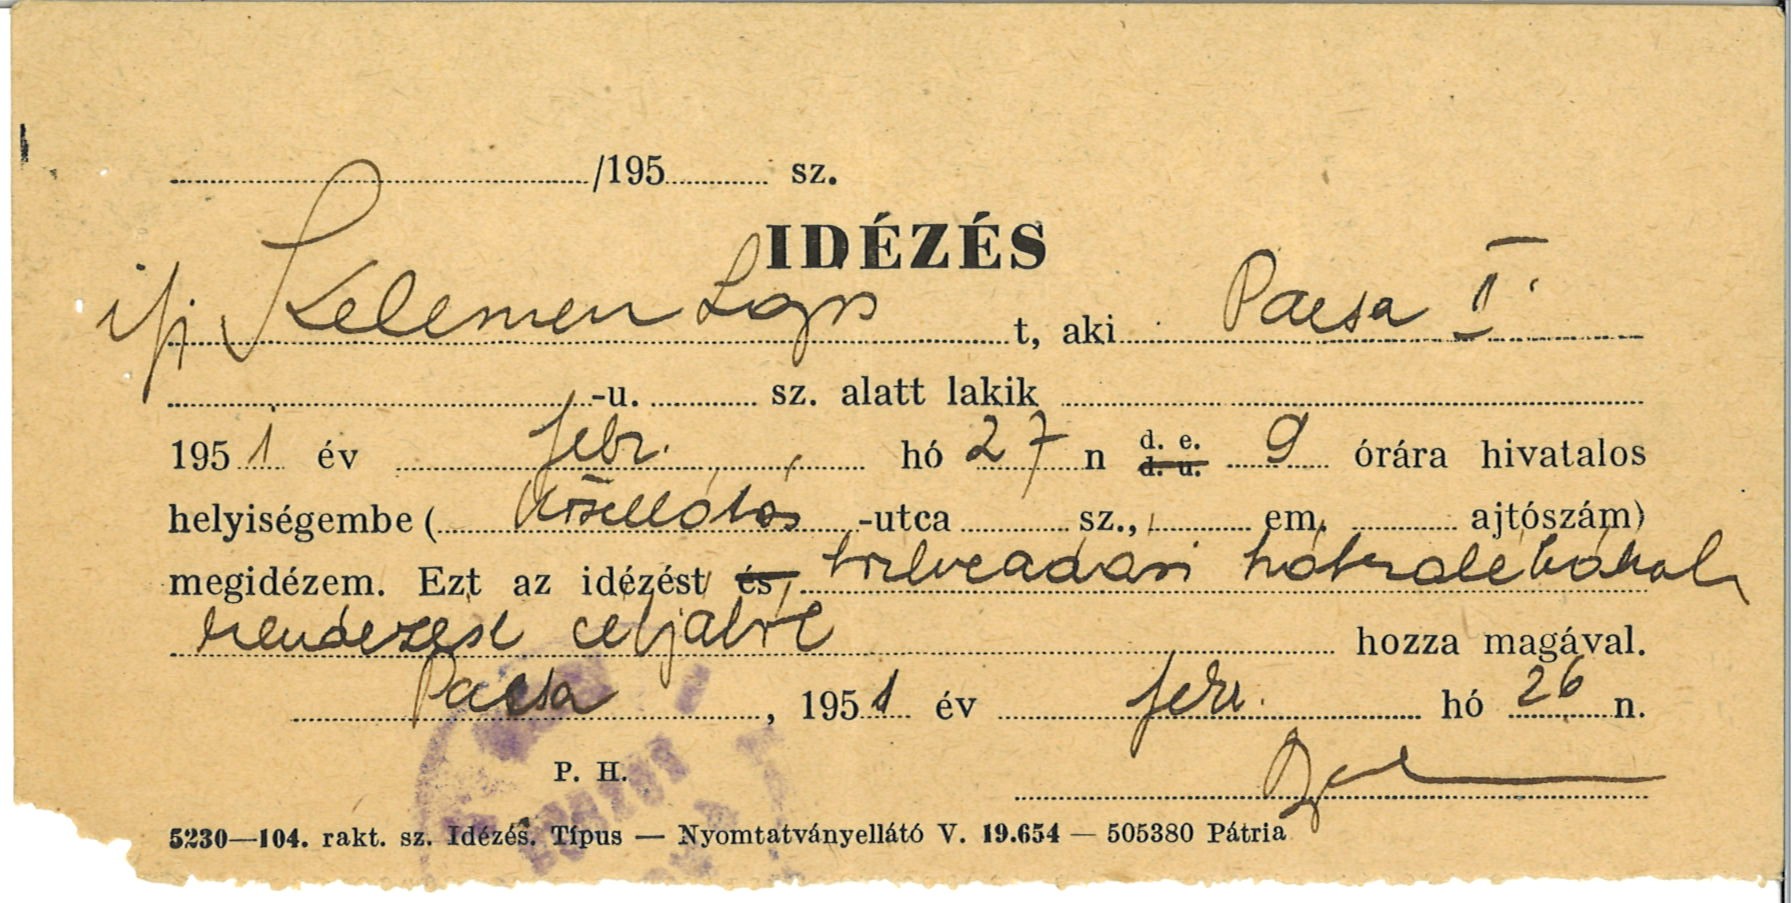 /195 sz.
IDÉZÉS
ifj Kelemen Lajos t, aki Pacsa II.
-u. sz. alatt lakik
1951 év febr. hó 27 n d. e. d. u. 9 órára hivatalos
helyiségembe ( -utca sz., em. ajtószám)
megidézem. Ezt az idézést és, hátralékának
rendezése céljából hozza magával.
Pacsa, 1951 év febr. hó 26 n.
P. H.
5230—104. rakt. sz. Idézés. Típus — Nyomtatványellátó V. 19.654 — 505380 Pátria